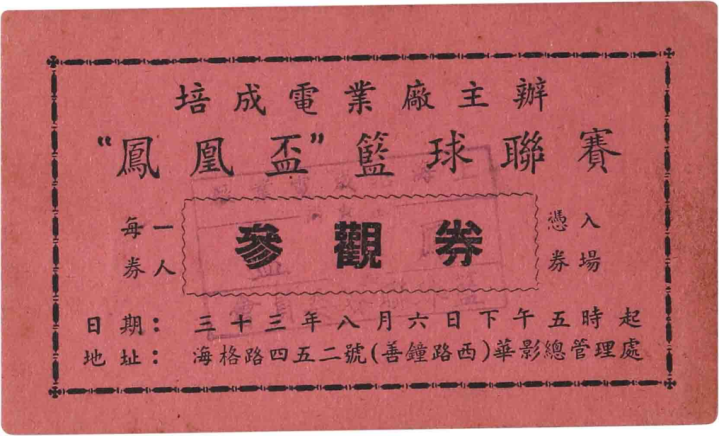 培成電業廠主辦
“鳳凰盃”籃球聯賽
每券一人
參觀券
憑券入場
日期：三十三年八月六日下午五時起
地址：海格路四五二號(善鐘路西)華影總管理處